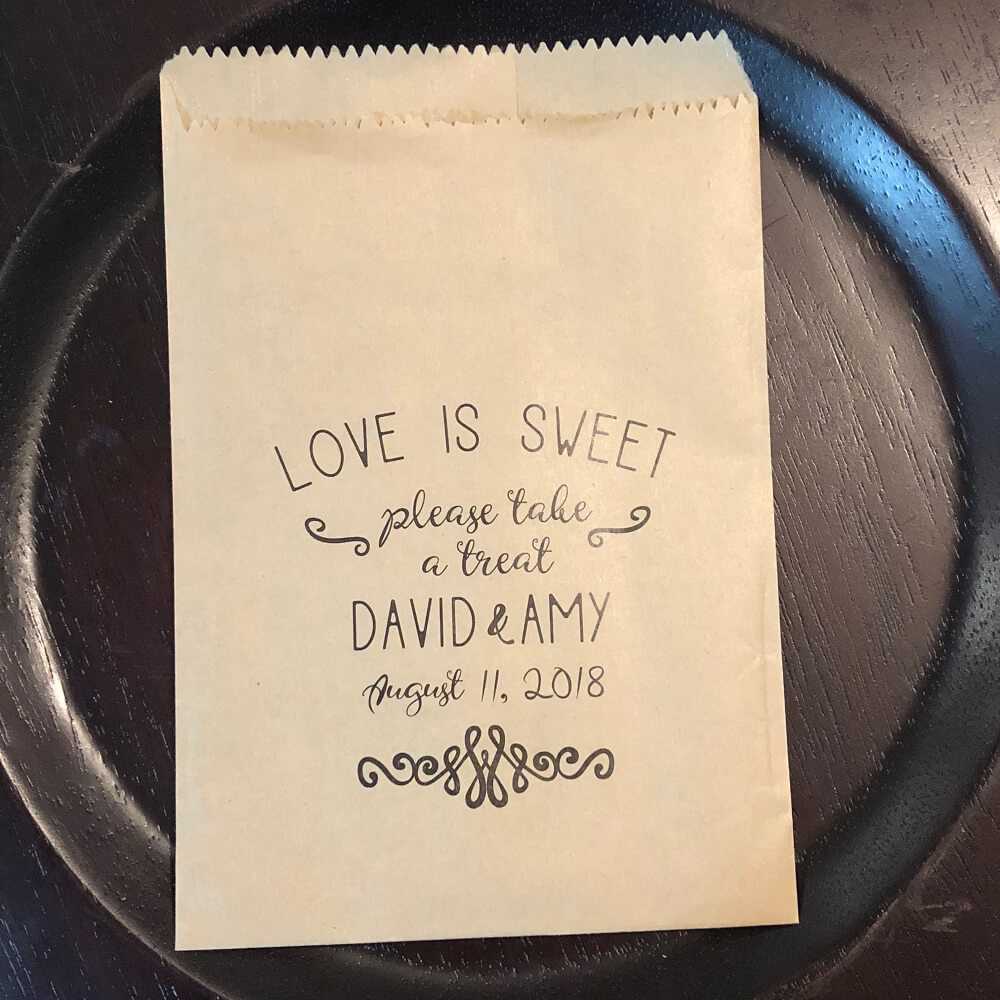 LOVE IS SWEET
please take
a treat
DAVID & AMY
August 11, 2018